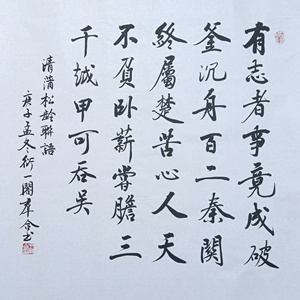 有志者事竟成破
釜沉舟百二秦關
終屬楚苦心人天
不負卧薪嘗膽三
千越甲可吞吳
清蒲松齡聯語
庚子孟冬